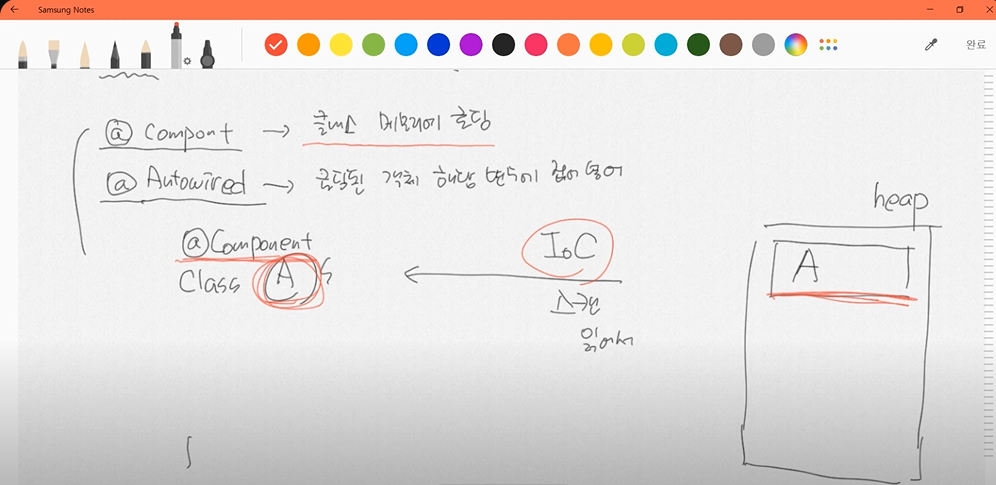 Samsung Notes
완료
ⓐ Compont → 클래스 메모리에 로딩
ⓐ Autowired → 로딩된 객체 해당 변수에 집어 넣어
heap
ⓐ Component
IoC
A
Class A {
스캔
읽어서